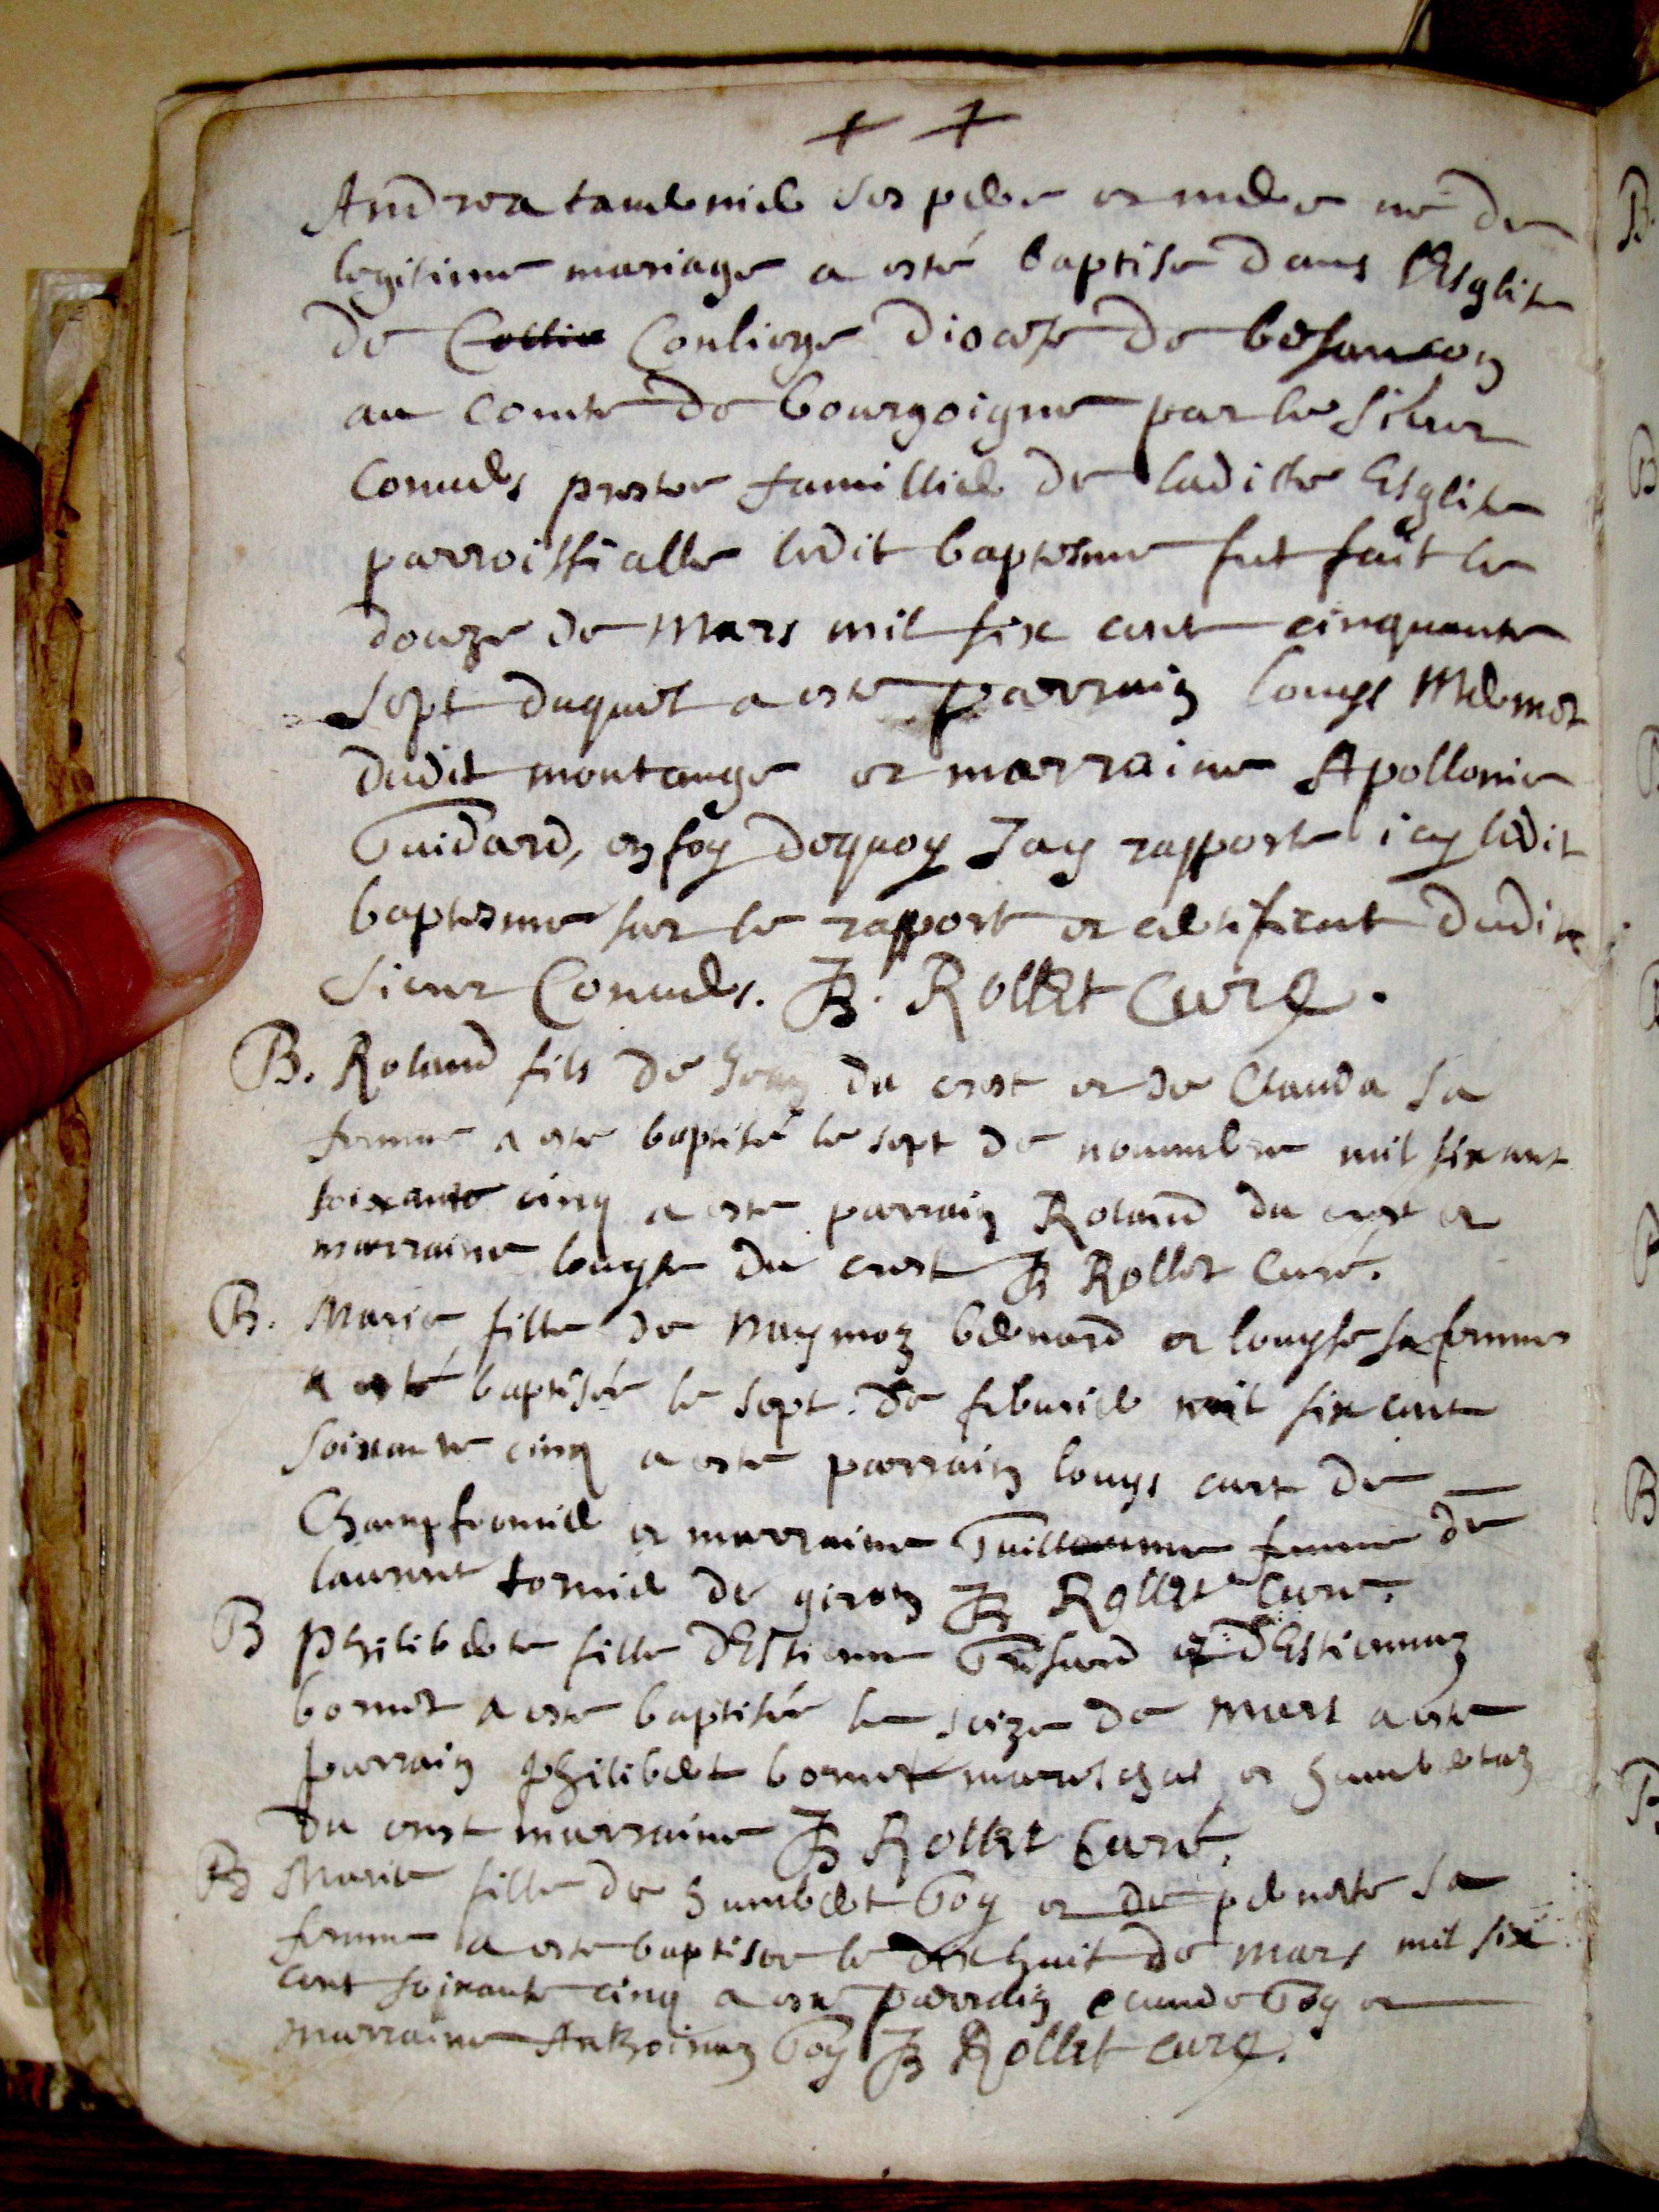 Andrea tavernier ses pere et mere né de
legitime mariage a esté baptise dans l'Esglise
de Conliege diocese de besancon
au comte de bourgoigne par le sieur
prestre famillier de ladicte Esglise
parroissialle ledit baptesme fut fait le
douze de Mars mil six cent cinquante
sept duquel a este parrain louys Mermet
dudit montange et marraine Apollonie
Guidard, en foy dequoy Jay rapporte icy ledit
baptesme sur le rapport et certificat dudit
sieur B. Rollet Curé.
B. Roland fils de Jean du crest et de Clauda sa
femme a este baptisé le sept de novembre mil six cent
soixante cinq a este parrain Roland du crest et
marraine louyse du crest B Rollet Curé.
B. Marie fille de Maymoz bernard et louyse sa femme
a esté baptisée le sept de febvrier mil six cent
soixante cinq a este parrain louys de
Champfromier et marraine Guillauma femme de
laurent tornier de giron B Rollet Curé.
B Philiberte fille d'Estienne d'Estiennaz
bornet a este baptisée le seize de mars a este
parrain Philibert bornet mareschal et humbertaz
du crest marraine B Rollet Curé.
B Marie fille de humbert Goy et de pernete sa
femme a este baptisee le dix huit de mars mil six
cent soixante cinq a este parrain claude Goy et
marraine Anthoinaz Goy B Rollet curé.